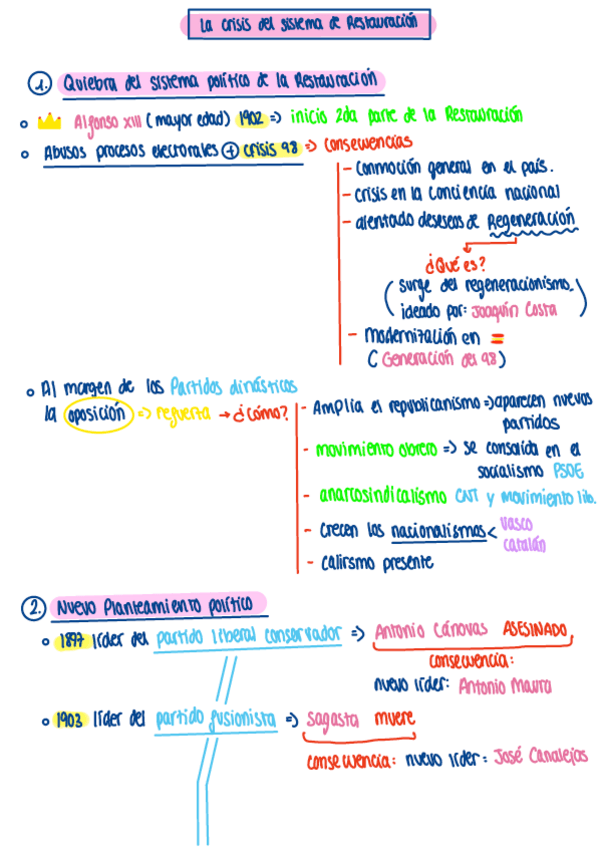 La crisis del sistema de Restauración
1. Quiebra del sistema político de la Restauración
Alfonso XIII (mayor edad) 1902 => inicio 2da parte de la Restauración
Abusos procesos electorales + crisis 98 => consecuencias
- Conmoción general en el país.
- Crisis en la conciencia nacional
- alentado deseseos de Regeneración
¿Qué es?
(surge del regeneracionismo.
ideado por: Joaquín Costa)
- modernización en
(Generación del 98)
Al margen de los Partidos dinásticos
la oposición => refuerta → ¿cómo?
- Amplia el republicanismo => aparecen nuevos
partidos
- movimiento obrero => se consolida en el
socialismo PSOE
- anarcosindicalismo CNT y movimiento lib.
- crecen los nacionalismos < vasco
catalán
- calirsmo presente
2. Nuevo Planteamiento político
1897 líder del partido liberal conservador => Antonio Cánovas ASESINADO
consecuencia:
nuevo líder: Antonio Maura
1903 líder del partido fusionista => Sagasta muere
consecuencia: nuevo líder: José Canalejas